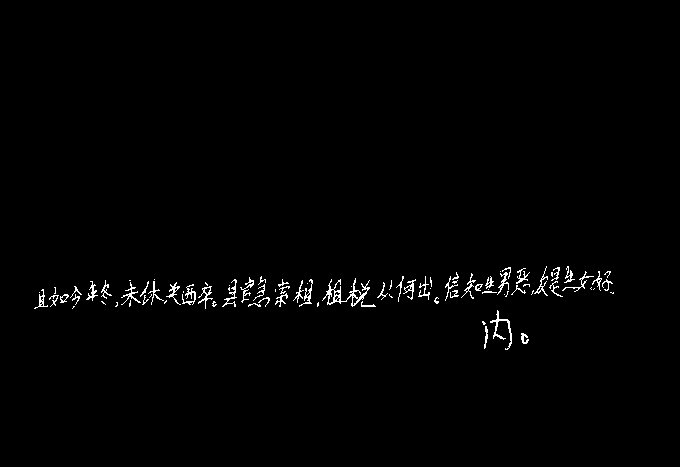 且如今年冬,未休关西卒。县官急索租,租税从何出。信知生男恶,反是生女好
内。